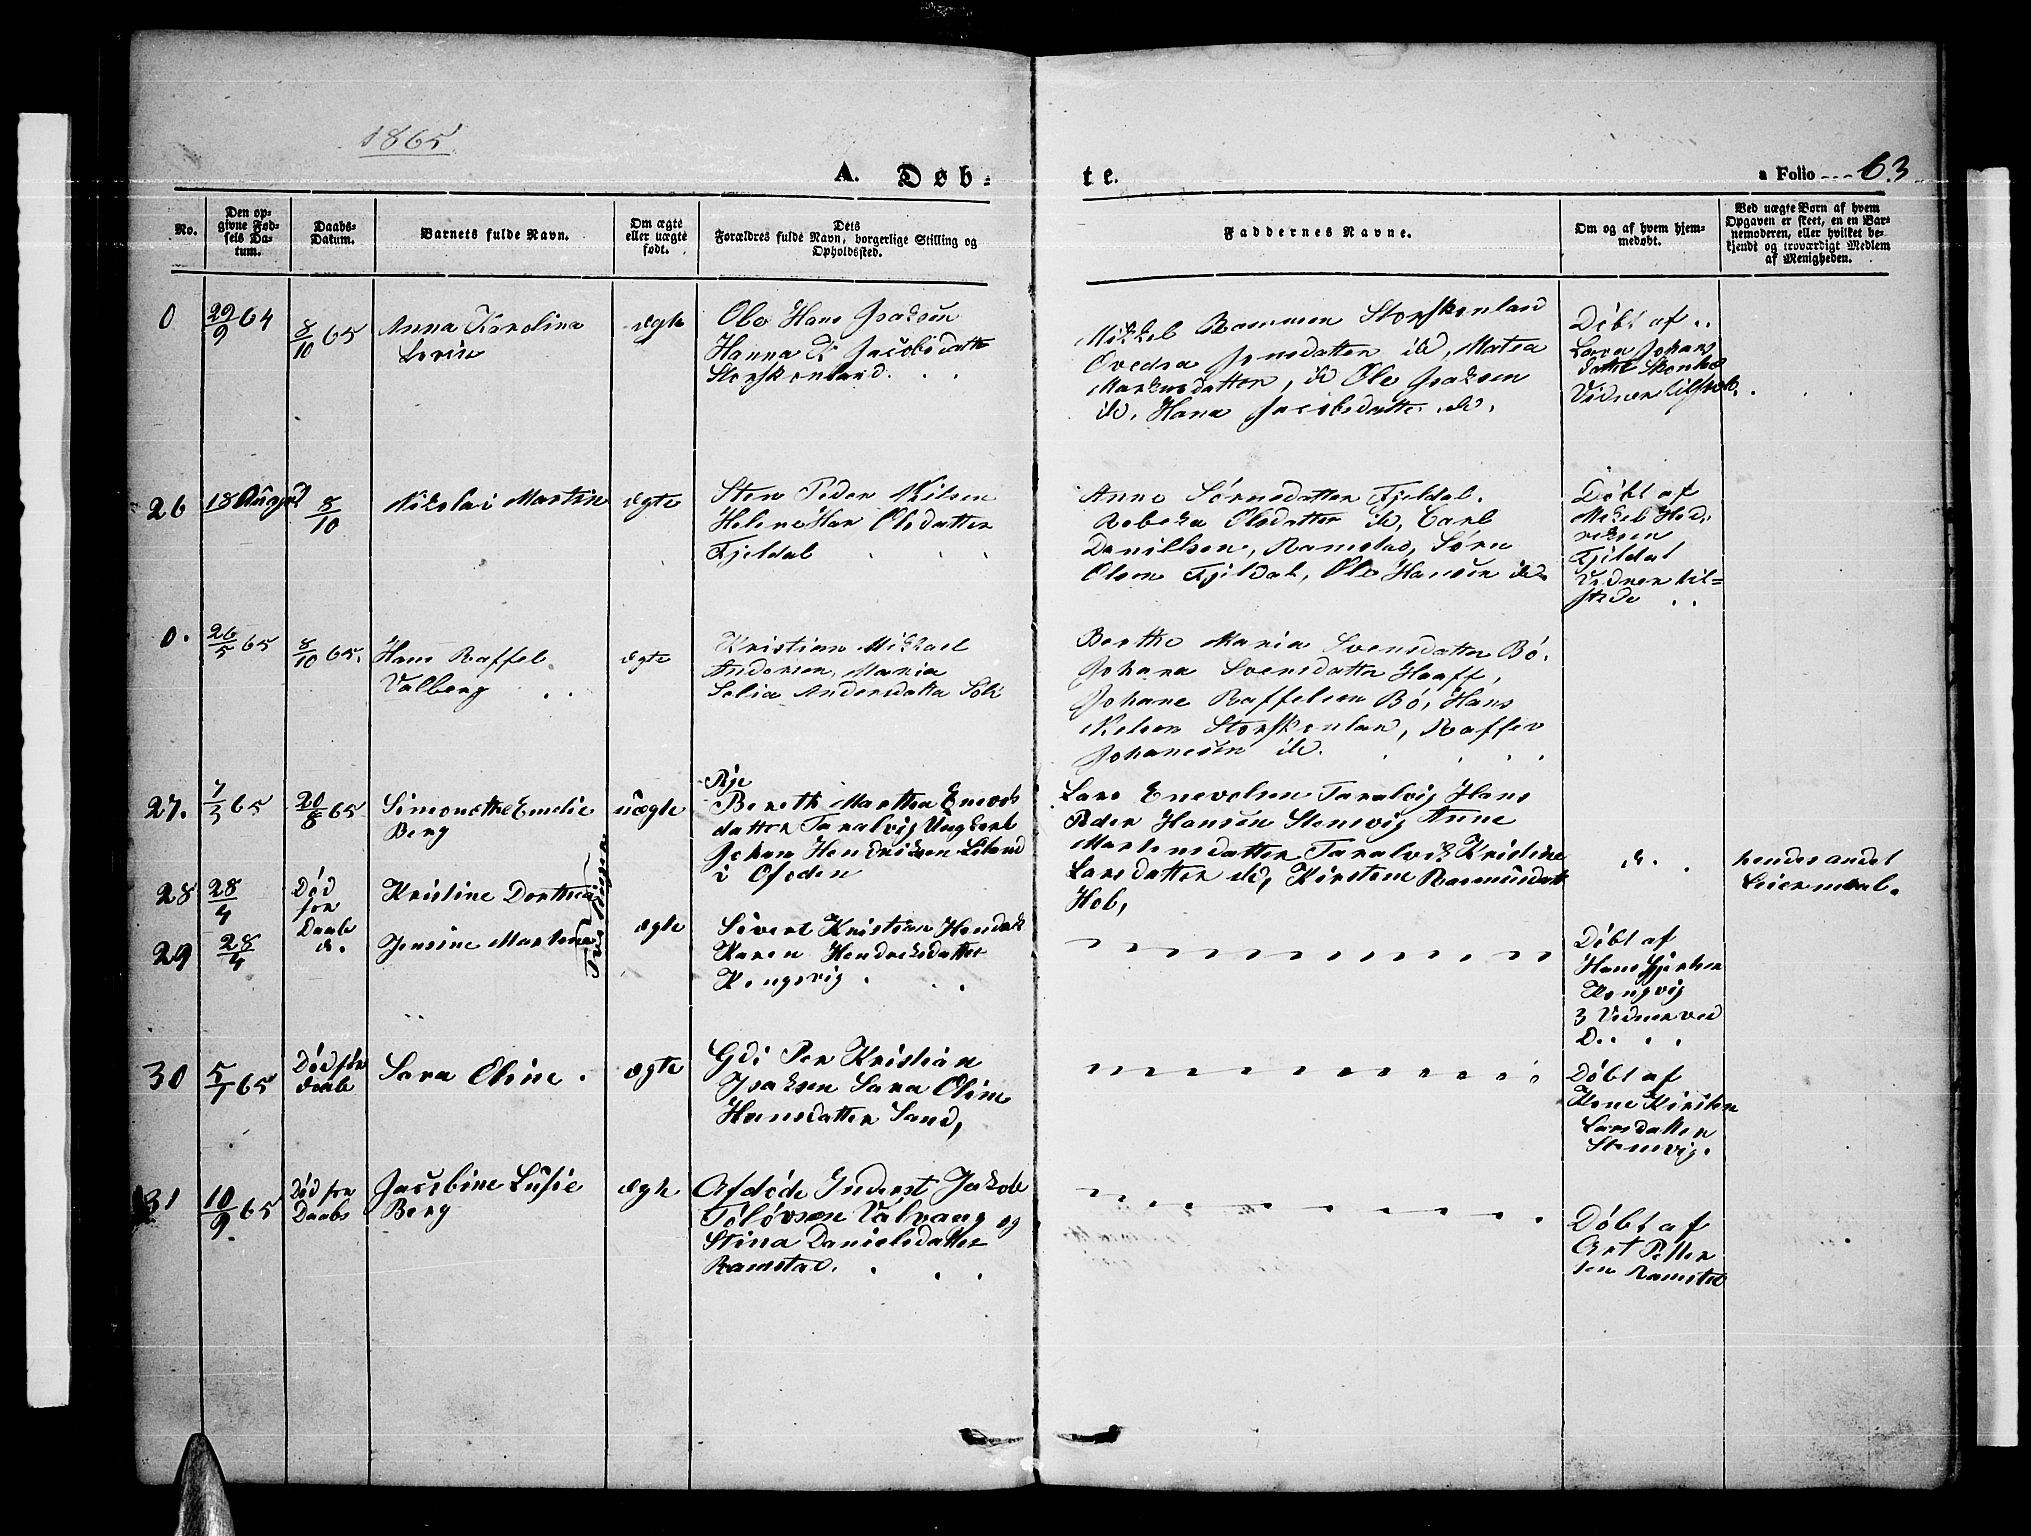 1865
A. Døb-
te.
a Folio 63
No.
Den op-
givne Fød-
sels Da-
tum.
Daabs-
Datum.
Barnets fulde Navn.
Om ægte
eller uægte
født.
Dets
Forældres fulde Navn, borgerlige Stilling og
Opholdssted.
Faddernes Navne.
Om og af hvem hjem-
medøbt.
Ved uægte Børn af hvem
Opgaven er skeet, en en Bar-
nemoderen, eller hvilket be-
kjendt og troværdigt Medlem
af Menigheden.
0
29/9 64
8/10 65
Anna Karolina
ægte
Ole Hans Isaksen
Hanna K Jacobsdatte
Storskonland
Mikkel Rasmusen Storskonland
Jonsdatter do, Matea
Markusdatter, do Ole Isaksen
do, Hana Jacobsdatte do.
Døbt af
Johans
datte
Vidner tilsted.
26
18 August
8/10
Nikolai Martin
ægte
Sten Peder Nilsen
Helene Olsdatter
Fjeldal
Anne Sørnsdatter Fjeldal.
Rebeka Olsdatter do, Carl
Danillsen, Ramstad, Sørn
Olsen Fjeldal, Ole Hansen do
Døbt af
Mekel Hed-
reksen
Fjeldal
Vidner til=
stede
0.
26/5 65
8/10 65.
Hans Raffel
Valberg
ægte
Kristian Mikkael
Andersen, Maria
Selia Andersdatta
Berthe Maria Svensdatter Bø.
Johana Svensdatter Haaff,
Johane Raffelsen Bø, Hans
Nelsen Storskonlan, Raffer
Johanesen do.
27.
7/3 65
20/8 65
Simonethe Emelie
Berg
uægte
Pje
Bereth Marthea Enevds
datter Taralvig Ungkarl
Johan Hendriksen Liland
i Ofoden
Lars Enevelsen Taralvig Hans
Peder Hansen Stenevig Anne
Martensdatter Taralvik Kristine
Larsdatter do, Kirsten Rasmusdatt
Hol,
d.
hendes andet
Leiermaal.
28
28/4
Død
for
Daab
Kristine Dorthea
Tvillinger
29
28/4
d.
Jensine Martine
ægte
Sivert Kristian Hendrik
Karen Hendreksdatter
Kongsvig
Døbt af
Hans
Kongvig
3 Vidner ved
D.
30
5/7 65
Død før
daab
Sara Oline.
ægte
Gdi Per Kristian
Isaksen Sara Oline
Hansdatter Sand,
Døbt af
Kone Kirsten
Larsdatter
Stenvig.
31
10/9 65
Død for
Daabs
Jacobine Lusie
Berg
ægte
Afdøde Inderst Jakob
Toløvsen Valvang og
Stina Danielsdatter
Ramstad.
Døbt af
Art Petter
sen Ramstad